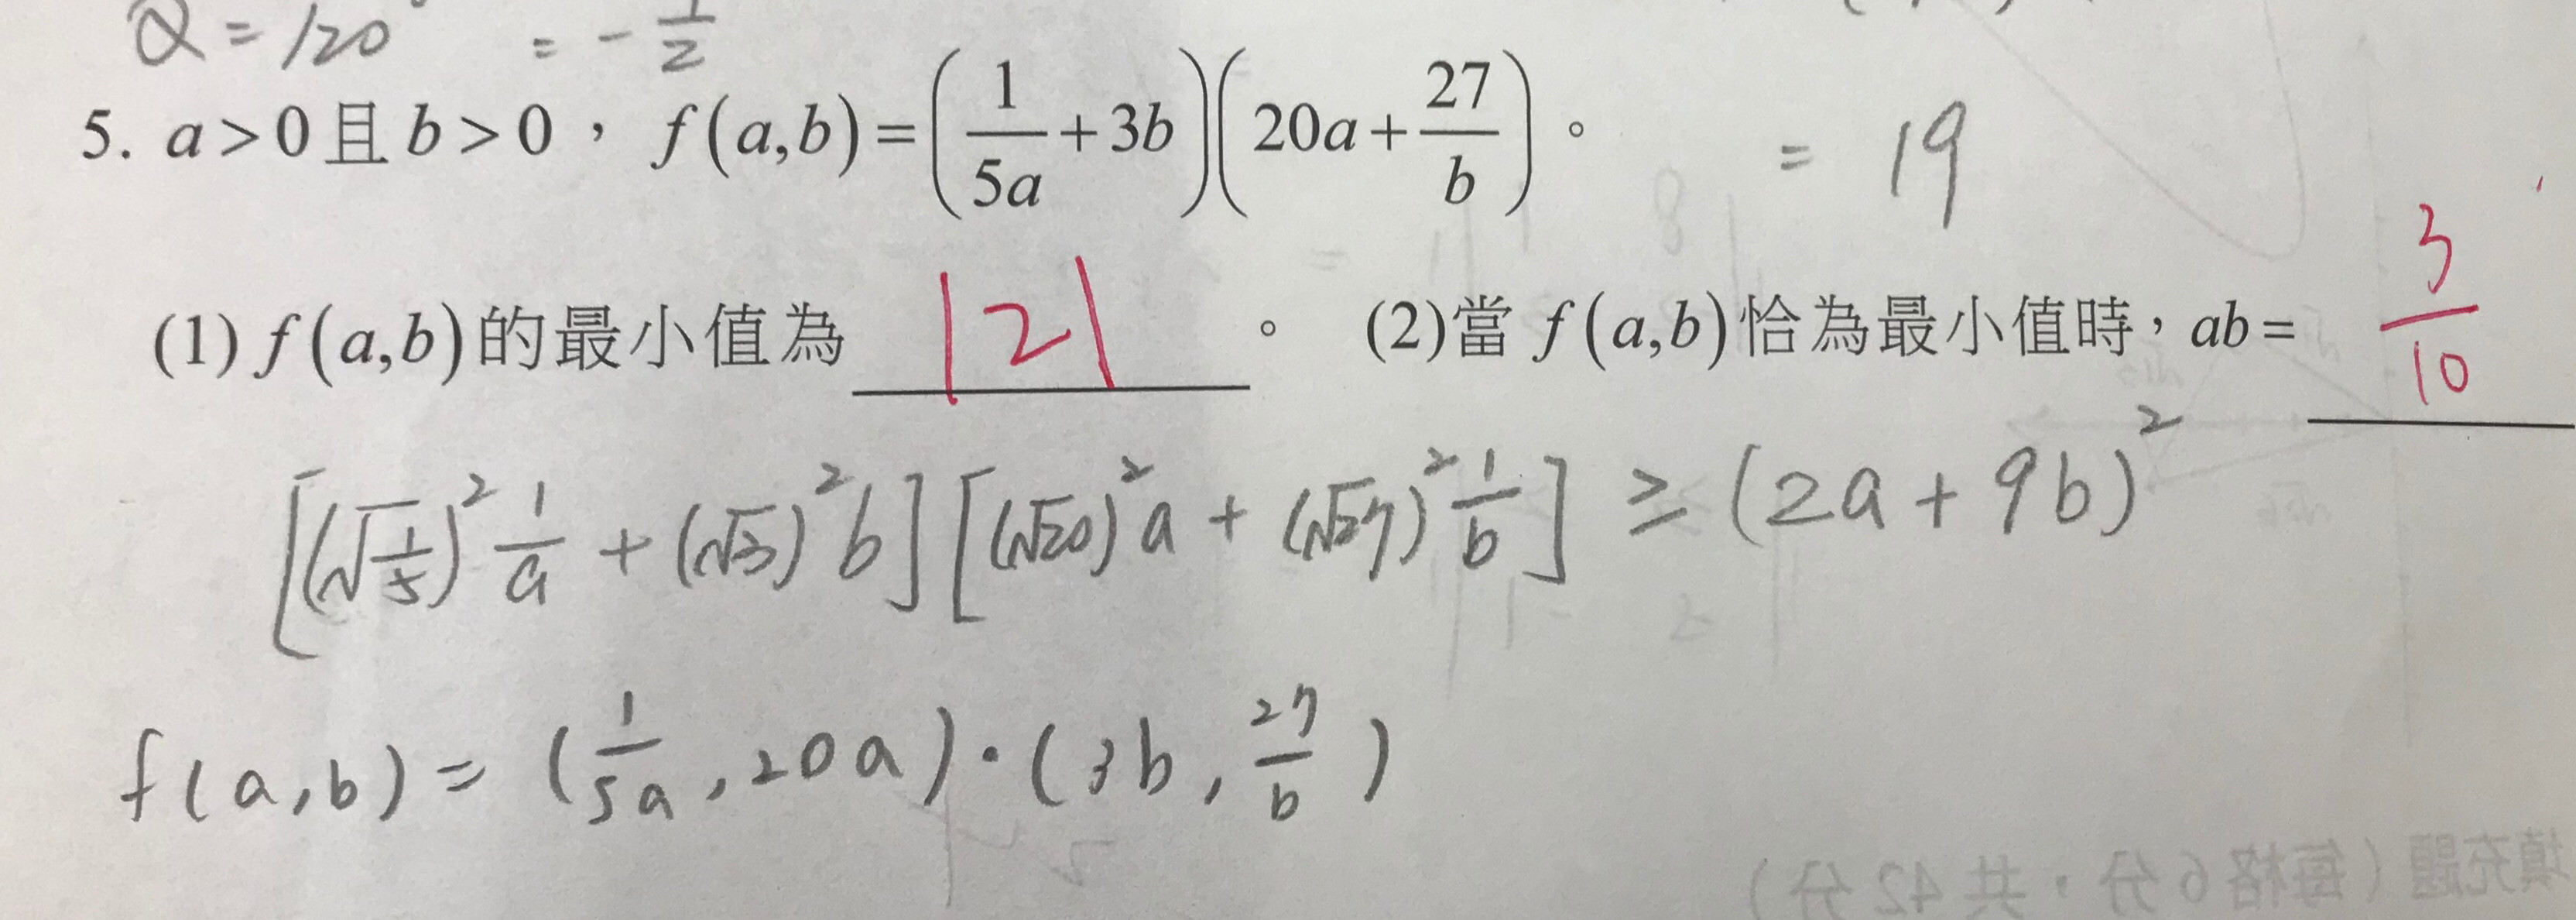 α = 120° = - 1/2
5. a > 0 且 b > 0 , f(a,b) = (1/5a + 3b)(20a + 27/b) 。 = 19
(1) f(a,b) 的最小值為 121 。 (2)當 f(a,b) 恰為最小值時, ab = 3/10
[(√1/5)² 1/a + (√3)² b] [(√20)² a + (√27)² 1/b] ≥ (2a + 9b)²
f(a,b) = (1/5a , 20a) · (3b , 27/b)
填充題 (每格 6 分,共 42 分)